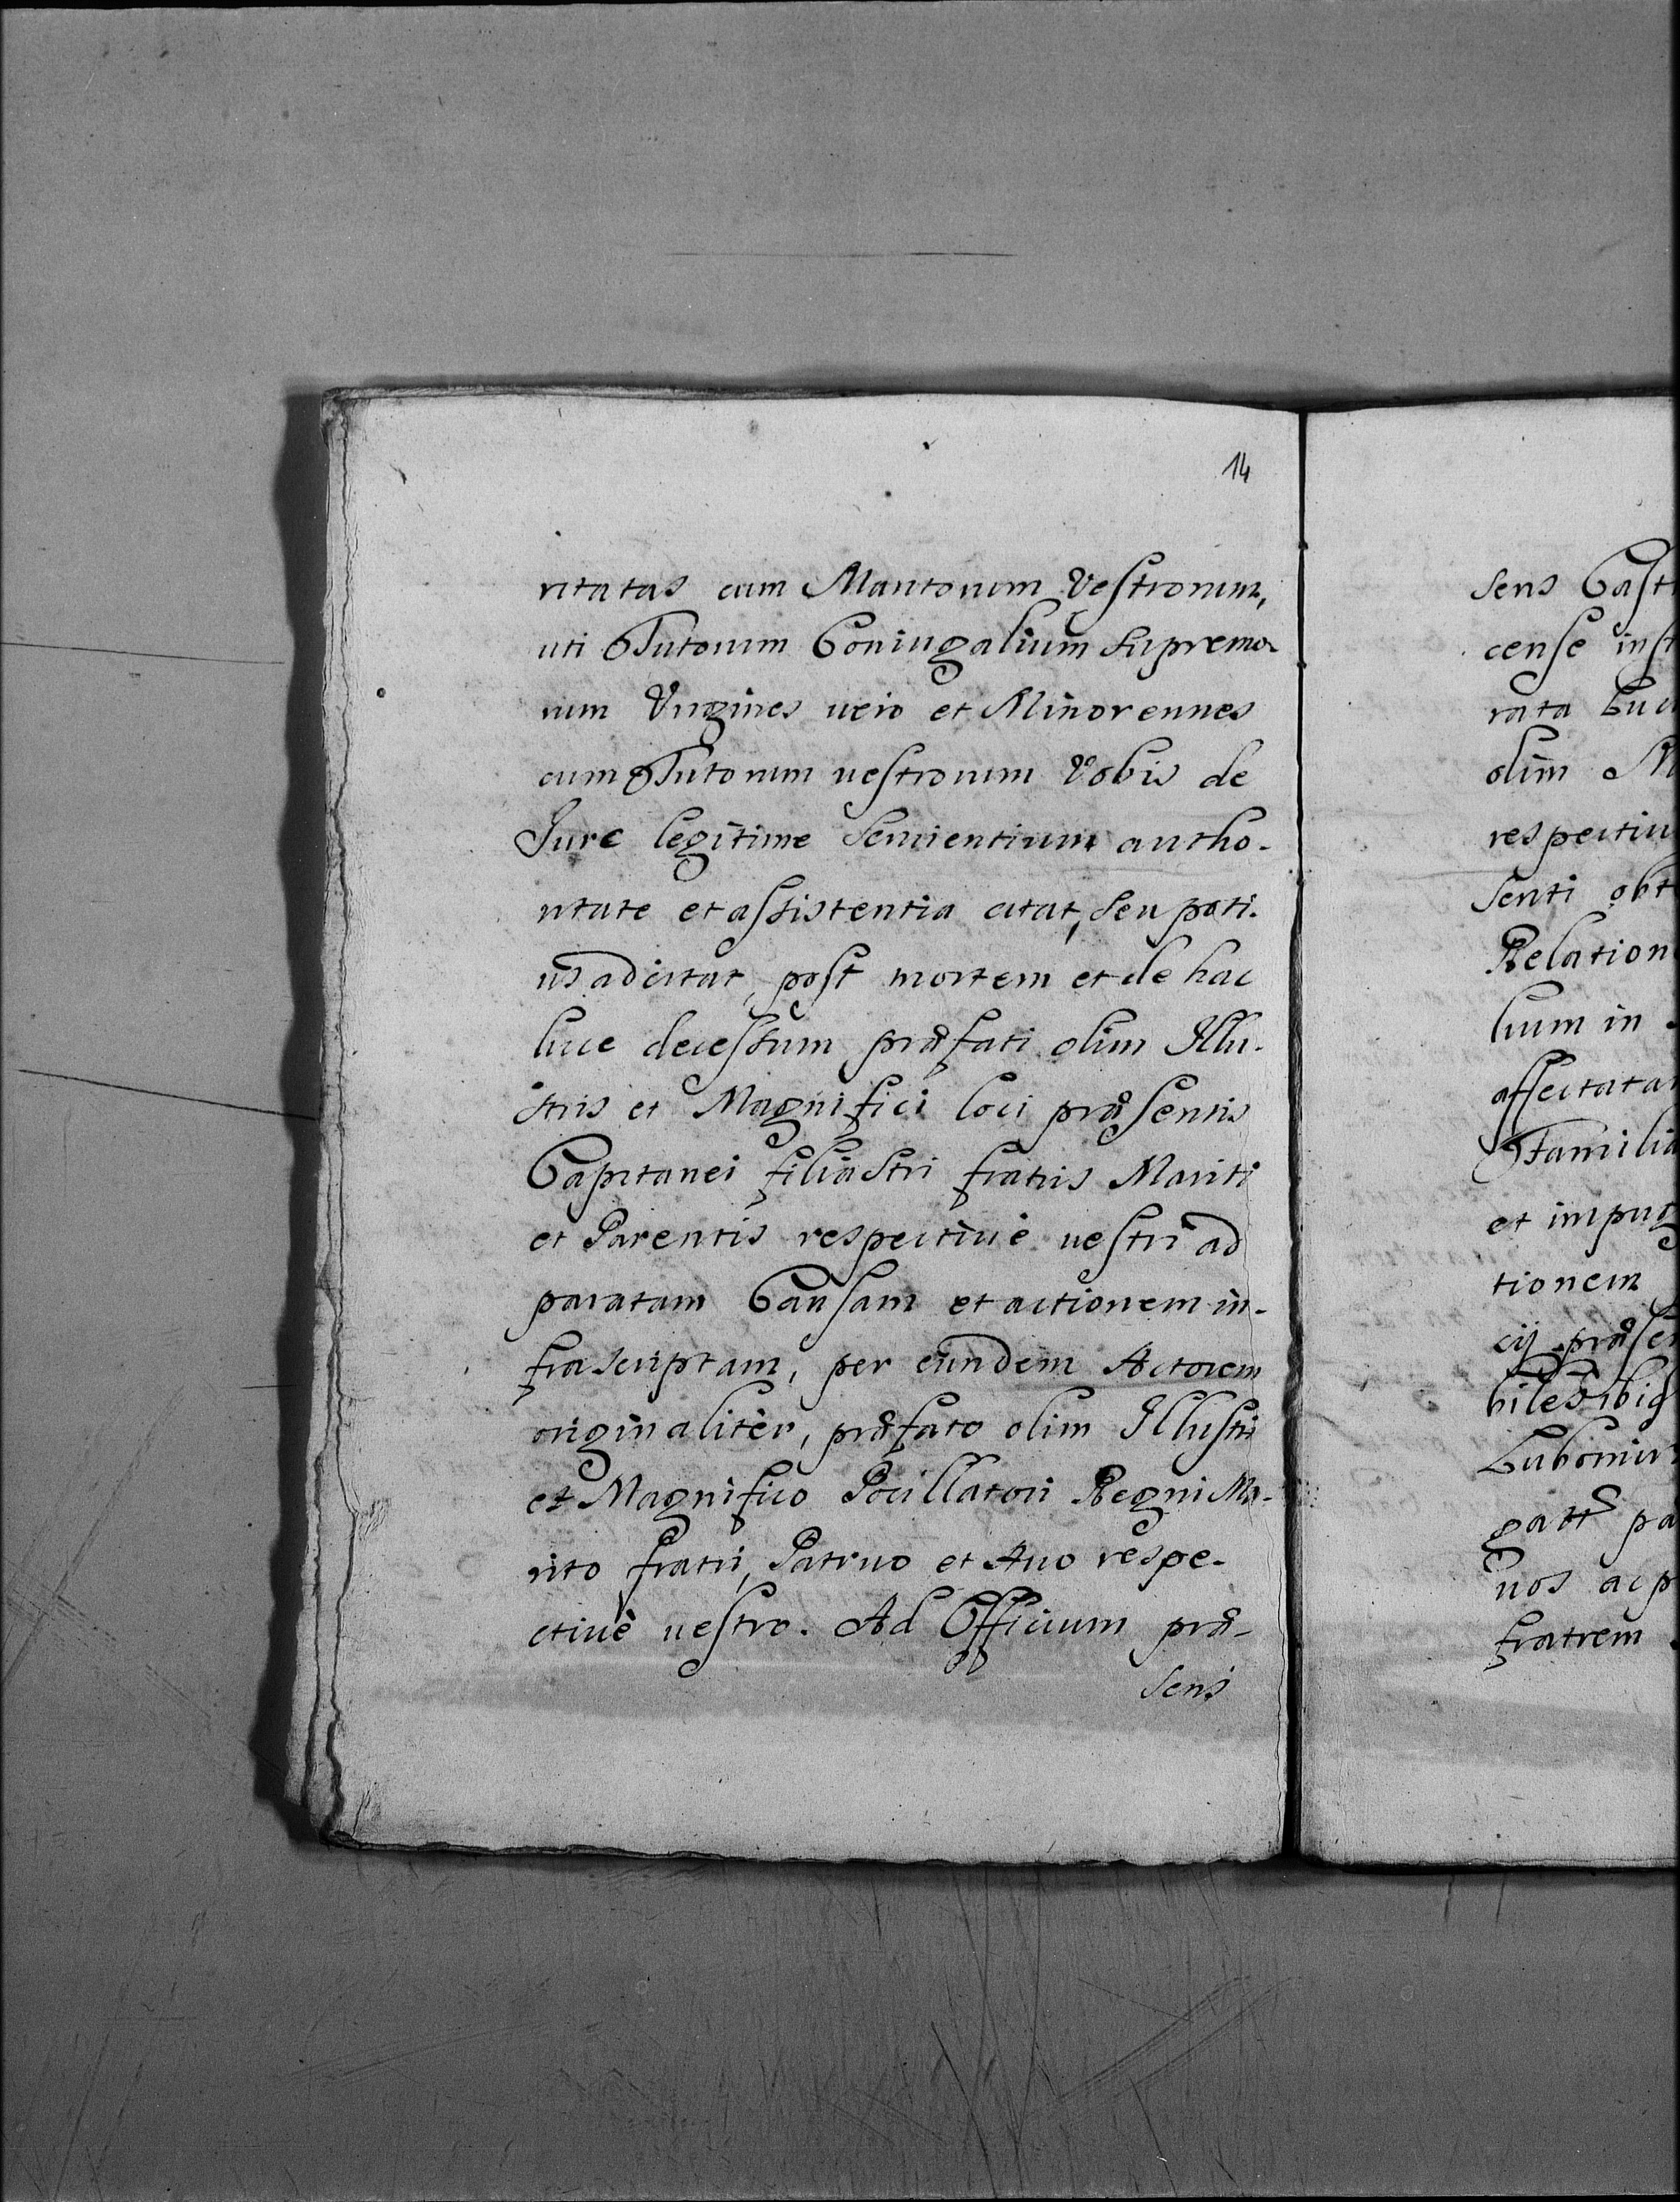 14
ritatas cum Maritorum Vestrorum,
uti Tutorum Coniugalium supremo-
rum Virgines uero et Minorennes
cum Tutorum uestrorum Vobis de
Jure legitime seruientium autho-
ritate et assistentia citat, seu poti-
us adcitat, post mortem et de hac
luce decessum præfati olim Illu-
stris et Magnifici loci præsentis
Capitanei filiastri fratris Mariti
et Parentis respectiuè uestri ad
paratam Causam et actionem in-
frascriptam, per eundem Actorem
originalitèr, præfato olim Illustri
et Magnifico Pocillatori Regni Ma-
rito fratri, Patruo et Auo respe-
ctiuè uestro. Ad Officium præ-
sens
sens Cast
cense inst
rata
olim
respectiu
senti obt
Relation
lium in
affectata
Familia
et impug
tionem
cij præse
biles ibid
Lubomir
gatt pa
uos ac p
fratrem